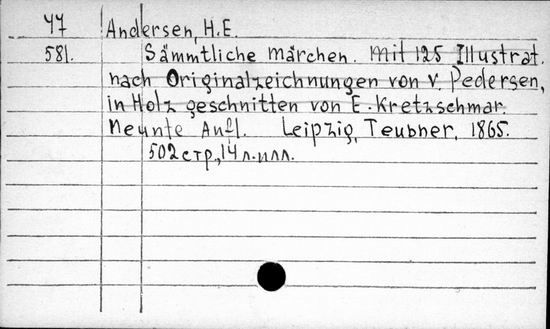 44 Andersen, H.E.
581. Sämmtliche Märchen. Mit 125 Illustrat.
nach Originalzeichnungen von V. Pedersen,
in Holz geschnitten von E. Kretzschmar.
Neunte Aufl. Leipzig, Teubner, 1865.
502 стр., 14 л. илл.